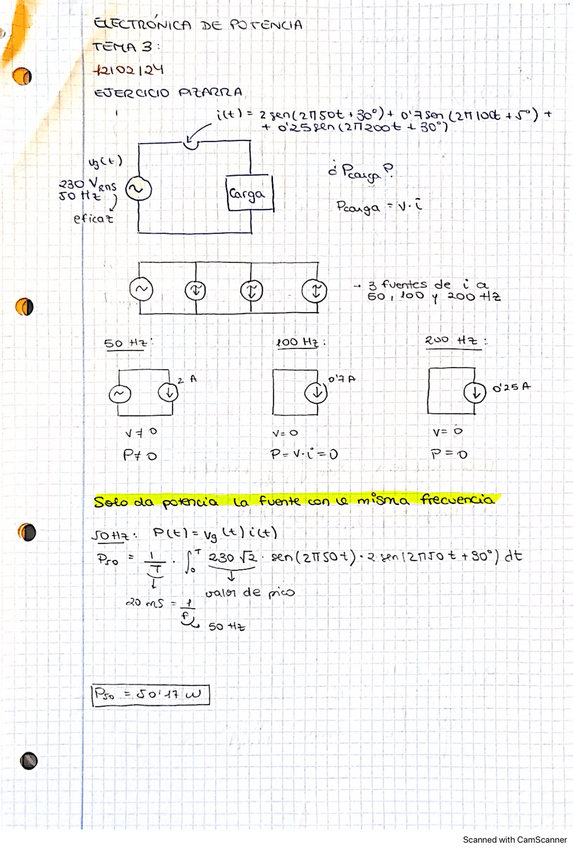 ELECTRÓNICA DE POTENCIA
TEMA 3:
12/02/24
EJERCICIO PIZARRA
i(t) = 2 sen(2π50t + 30°) + 0'7 sen (2π100t + 5°) +
+ 0'25 sen (2π200t + 30°)
vg(t)
230 VRMS
50 Hz
eficaz
Carga
¿Pcarga?
Pcarga = v·i
→ 3 fuentes de i a
50, 100 y 200 Hz
50 Hz:
100 Hz:
200 Hz:
2 A
0'7 A
0'25 A
V ≠ 0
V = 0
V = 0
P ≠ 0
P = V·i = 0
P = 0
Solo da potencia la fuente con la misma frecuencia
50Hz: P(t) = vg(t) i(t)
P50 = 1/T · ∫0T 230 √2 · sen(2π50t) · 2 sen(2π50t + 30°) dt
valor de pico
20 ms = 1/f
50 Hz
P50 = 50'17 W
Scanned with CamScanner